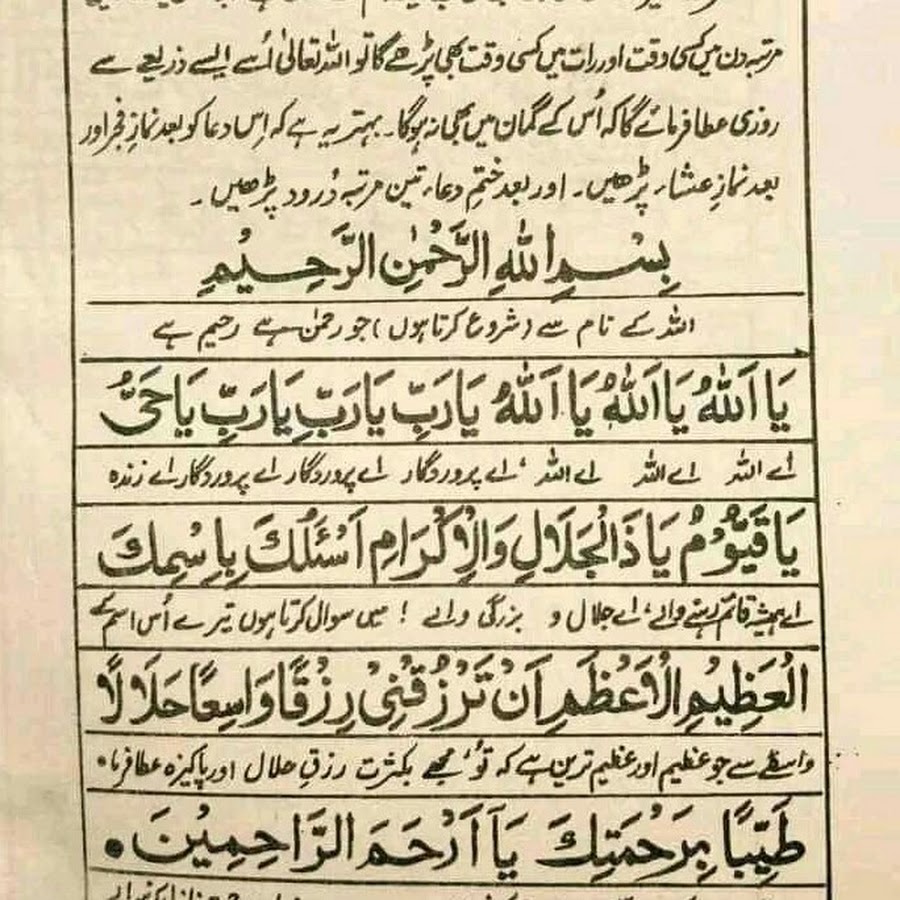 مرتبہ دن میں کسی وقت اور رات میں کسی وقت بھی پڑھے گا تو اللہ تعالیٰ اُسے ایسے ذریعے سے
روزی عطا فرمائے گا کہ اُس کے گمان میں بھی نہ ہو گا۔ بہتر یہ ہے کہ اِس دعا کو بعد نمازِ فجر اور
بعد نمازِ عشاء پڑھیں۔ اور بعد ختمِ دعاء تین مرتبہ دُرود پڑھیں۔
بِسْمِ اللهِ الرَّحْمٰنِ الرَّحِيْمِ
اللہ کے نام سے (شروع کرتا ہوں) جو رحمٰن ہے رحیم ہے
يَا اَللهُ يَا اَللهُ يَا اَللهُ يَا رَبِّ يَا رَبِّ يَا رَبِّ يَا حَيُّ
اے اللہ اے اللہ اے اللہ، اے پروردگار اے پروردگار اے پروردگار اے زندہ
يَا قَيُّوْمُ يَا ذَالْجَلَالِ وَالْاِكْرَامِ اَسْئَلُكَ بِاِسْمِكَ
اے ہمیشہ قائم رہنے والے، اے جلال و بزرگی والے! میں سوال کرتا ہوں تیرے اُس اسم کے
الْعَظِيْمِ الْاَعْظَمِ اَنْ تَرْزُقَنِىْ رِزْقًا وَاسِعًا حَلَالًا
واسطے سے جو عظیم اور عظیم ترین ہے کہ تُو مجھے بکثرت رزقِ حلال اور پاکیزہ عطا فرما۔
طَيِّبًا بِرَحْمَتِكَ يَآ اَرْحَمَ الرَّاحِمِيْنَ۔